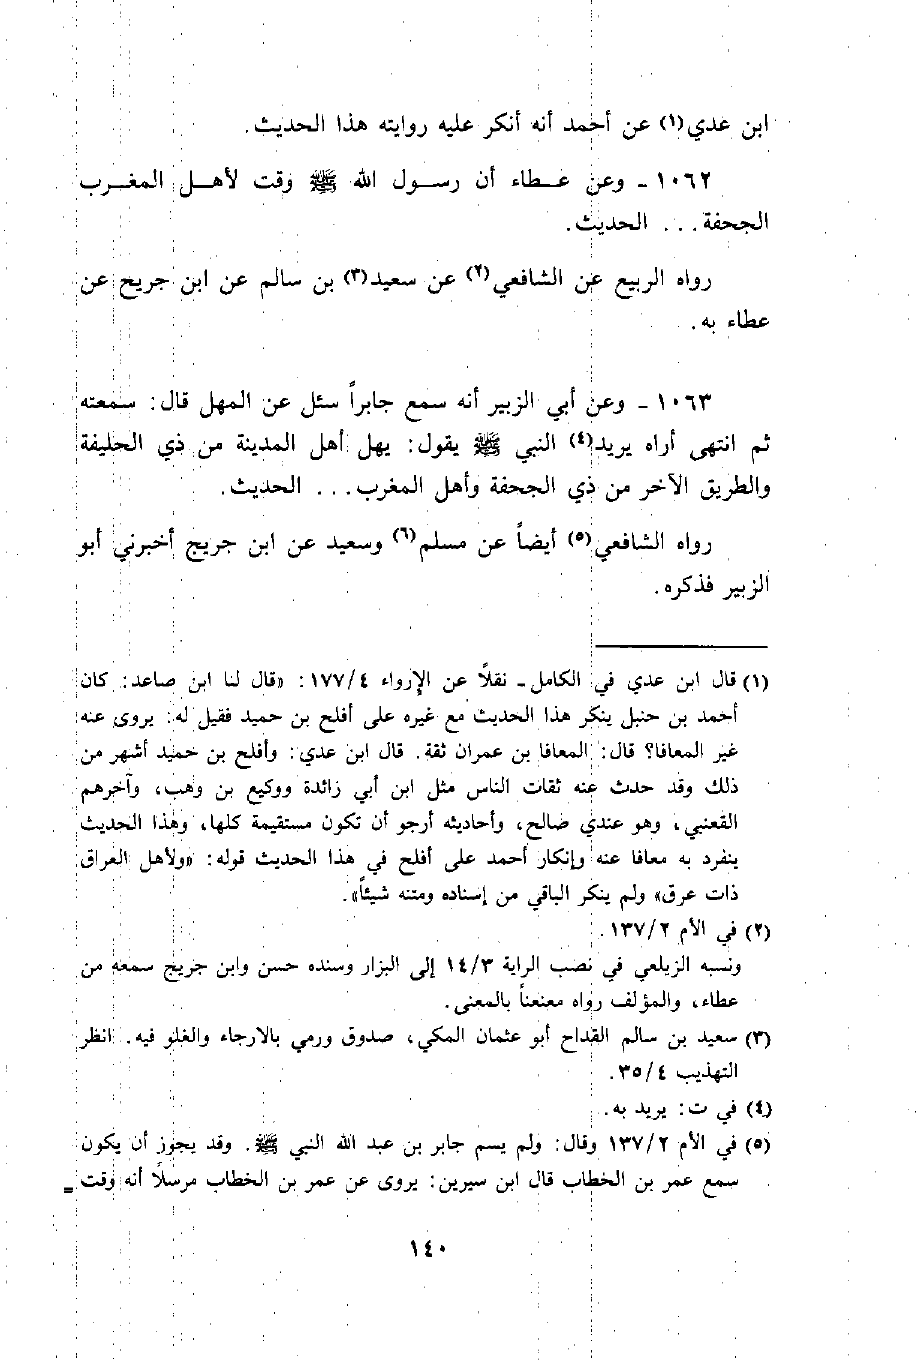 ابن عدي(١) عن أحمد أنه أنكر عليه روايته هذا الحديث.
١٠٦٢ - وعن عطاء أن رسول الله ﷺ وقت لأهل المغرب
الجحفة... الحديث.
رواه الربيع عن الشافعي(٢) عن سعيد(٣) بن سالم عن ابن جريج عن
عطاء به.
١٠٦٣ - وعن أبي الزبير أنه سمع جابراً سئل عن المهل قال: سمعته
ثم انتهى أراه يريد(٤) النبي ﷺ يقول: يهل أهل المدينة من ذي الحليفة
والطريق الآخر من ذي الجحفة وأهل المغرب... الحديث.
رواه الشافعي(٥) أيضاً عن مسلم(٦) وسعيد عن ابن جريج أخبرني أبو
الزبير فذكره.
(١) قال ابن عدي في الكامل - نقلاً عن الإرواء ١٧٧/٤: «قال لنا ابن صاعد: كان
أحمد بن حنبل ينكر هذا الحديث مع غيره على أفلح بن حميد فقيل له: يروى عنه
غير المعافا؟ قال: المعافا بن عمران ثقة. قال ابن عدي: وأفلح بن حميد أشهر من
ذلك وقد حدث عنه ثقات الناس مثل ابن أبي زائدة ووكيع بن وهب، وآخرهم
القعنبي، وهو عندي صالح، وأحاديثه أرجو أن تكون مستقيمة كلها، وهذا الحديث
ينفرد به معافا عنه وإنكار أحمد على أفلح في هذا الحديث قوله: «ولأهل العراق
ذات عرق» ولم ينكر الباقي من إسناده ومتنه شيئاً».
(٢) في الأم ١٣٧/٢.
ونسبه الزيلعي في نصب الراية ١٤/٣ إلى البزار وسنده حسن وابن جريج سمعه من
عطاء، والمؤلف رواه معنعناً بالمعنى.
(٣) سعيد بن سالم القداح أبو عثمان المكي، صدوق ورمي بالارجاء والغلو فيه. انظر
التهذيب ٣٥/٤.
(٤) في ت: يريد به.
(٥) في الأم ١٣٧/٢ وقال: ولم يسم جابر بن عبد الله النبي ﷺ. وقد يجوز أن يكون
سمع عمر بن الخطاب قال ابن سيرين: يروى عن عمر بن الخطاب مرسلاً أنه وقت =
١٤٠